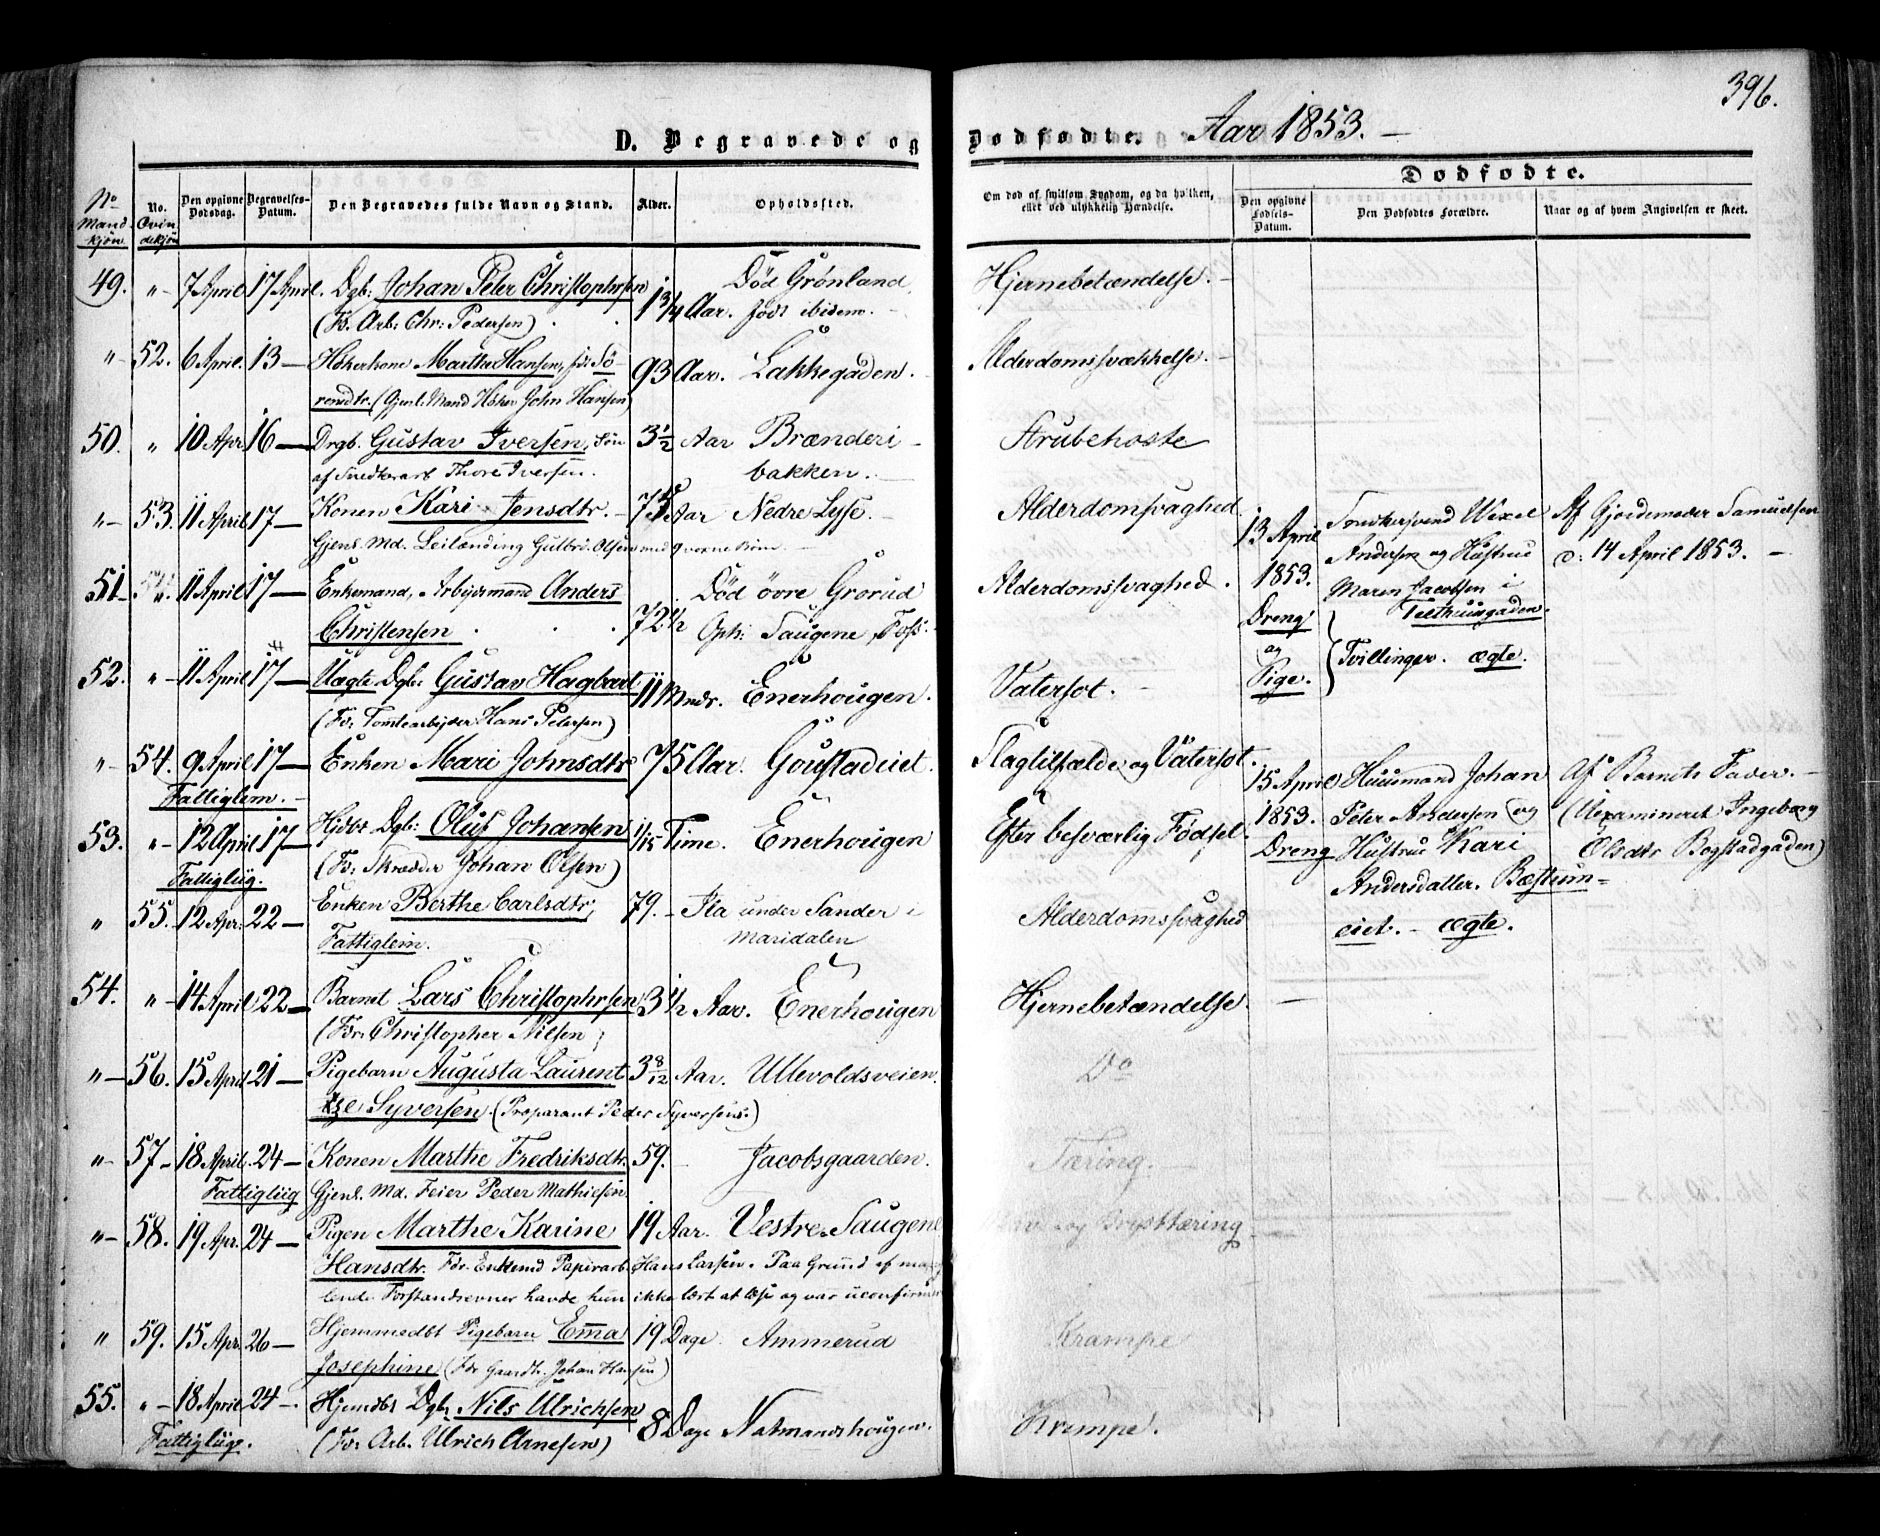 396.
D. Begravede og Dødfødte. Aar 1853. –
No Mand-kjøn.
No. Qvindekjøn
Den opgivne Dødsdag.
Begravelses-Datum.
Den Begravedes fulde Navn og Stand.
Alder.
Opholdssted.
Om død af smitsom Sygdom, og da hvilken, eller ved ulykkelig Hændelse.
Dødfødte.
Den opgivne Fødsels-Datum.
Den Dødfødtes Forældre.
Naar og af hvem Angivelsen er skeet.
49. " 7 April 17 April. Dgb: Johan Peter Christophersen 1 3/4 Aar. Død Grønland, Hjernebetændelse. –
(Fr. Arb: Chr: Pedersen) født ibidem. –
" 52. 6 April. 13 – Høkerkone Marthe Hansen, fdt Sö- 93 Aar. Lakkegaden. Alderdomssvækkelse. –
rensdtr. (Gjenl. Mand Høker John Hansen)
50. " 10 Apr. 16 – Drgb. Gustav Iversen, Søn 3 1/2 Aar Brænderi- Strubehoste
af Snedkerarb Thore Iversen. bakken. –
" 53. 11 April 17 – Konen Kari Jensdtr. 75 Aar Nedre Lyse. – Alderdomsvaghed
Gjenl. Md. Leilænding Gulbr. Olsen med voxne Børn –
51. " 11 April 17 – Enkemand, Arbejdsmand Anders 72 1/2 Død övre Grorud Alderdomssvaghed.
Christensen Oph: Saugene, Foss. –
52. " 11 April 17 – Uægte Dgb: Gustav Hagbart 11 Mndr. Enerhougen. Vatersot. –
(Fr. Tomtearbejder Hans Petersen)
" 54. 9 April 17 – Enken Mari Johnsdtr 75 Aar. Goustadeiet. Slagtilfælde og Vatersot.
Fattiglem. –
53. " 12 April 17 – Hjdbt Dgb: Oluf Johansen 1/15 Time. Enerhougen Efter besværlig Födsel.
Fattigliig. (Fr. Skræder Johan Olsen)
" 55. 12 Apr: 22 – Enken Berthe Carlsdtr, 79. – Ila under Sander i Alderdomssvaghed
Fattiglem. Maridalen
54. " 14 April 22 – Barnet Lars Christophersen 3 1/2 Aar. Enerhougen Hjernebetændelse. –
(Fdr. Christopher Nilsen)
" 56. 15 April 21 – Pigebarn Augusta Laurent- 3 8/12 Aar. Ullevoldsveien. Do
ze Syversen. (Proparant Peder Syversens.)
" 57 – 18 April 24 – Konen Marthe Fredriksdtr. 59. – Jacobsgaarden. Tæring.
Fattigliig Gjenl. Md. Feier Peder Mathiesen
" 58. 19 Apr. 24 – Pigen Marthe Karine 19 Aar. Vestre Saugene og Brysttæring
Hansdtr. Fdr. Enkemd Papirarb. Hans Larsen. Paa Grund af mang-
lende Forstandsevner havde hun ikke lært at læse og var uconfirmer
" 59. 15 Apr. 26 – Hjemmedbt Pigebarn Emma 19 Dage Ammerud Krampe
Josephine (Fdr Gaardbr. Johan Hansen)
55. " 18 April 24 – Hjemdbt Dgb. Nils Ulrichsen 8 Dage Natmandshougen. Krampe.
Fattigliig. (Fr. Arb. Ulrich Arnesen)
13 April 1853. Dreng og Pige.
Snedkersvend Wexel
Andersen og Hustrue
Maren Jacobsen i
Telthuusgaden.
Tvillinger. ægte.
Af Gjordemoder Samuelsen
d: 14 April 1853. –
15 April 1853. Dreng
Huusmand Johan
Peter Andersen og
Hustrue Kari
Andersdatter. Bæstum-
eiet. – ægte.
Af Barnets Fader. –
(Uexamineret Ingeborg
Olsdtr Bogstadgaden)